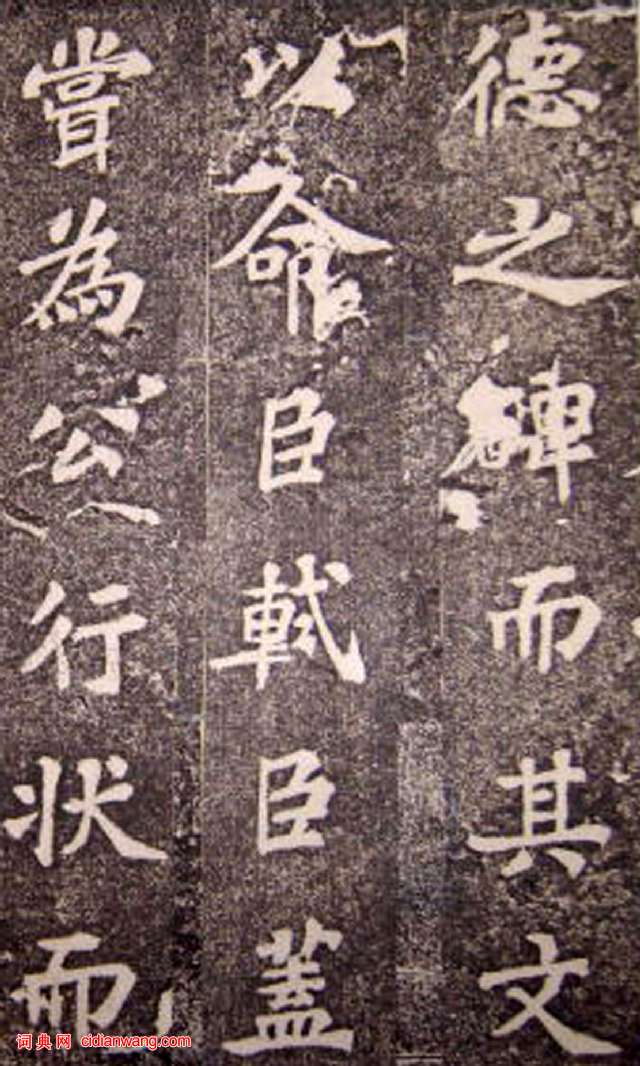 德之碑而其文
以命臣軾臣蓋
嘗為公行狀而
词典网 cidianwang.com